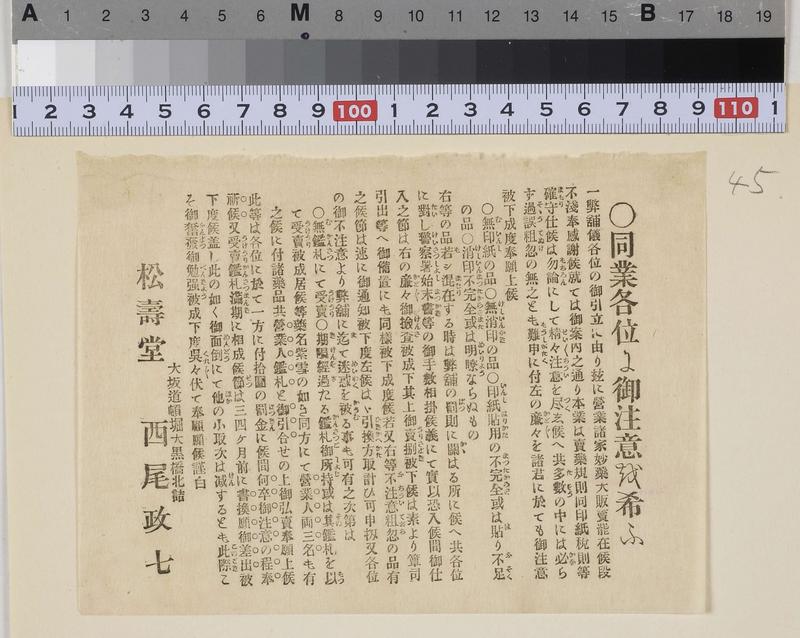 ○同業各位に御注意を希ふ
一弊舗儀各位の御引立に由り玆に營業諸家妙藥大販賣罷在候段
不淺奉感謝候就ては御案內之通り本業は賣藥規則同印紙稅則等
確守仕候は勿論にして精々注意を尽立候へ共多數の中には必ら
ず過誤粗忽の無之とも難申に付左の廉々を諸君に於ても御注意
被下成度奉願上候
○無印紙の品○無消印の品○印紙貼用の不完全或は貼り不足
の品○消印不完全或は明瞭ならぬもの
右等の品若シ混在する時は弊舗の罰則に關はる所に候へ共各位
に對し警察署始末書等の御手數相掛候義にて實以恐入候間御仕
入之節は右の廉々御撿査被成下其上御賣捌被下候は素より箪司
引出等へ御備置にも同樣被下成度候若又右等不注意粗忽の品有
之候節は速に御通知被下度左候はゞ引換方取計ひ可申扨又各位
の御不注意より弊舗に迄て迷惑を被る事も可有之次第は
○無鑑札にて受賣○期限經過たる鑑札御所持或は其鑑札を以
て受賣被成居候等藥名紫雪の如き同方にて營業人両三名も有
之候に付諸藥品共營業人鑑札と御引合せの上御弘賣奉願上候
此等は各位に於て一方に付拾圓の罰金に候間何卒御注意の程奉
祈候又受賣鑑札滿期に相成候節は三四ヶ月前に書換願御差出被
下度候盖し此の如く御面倒にて他の小取次は減するとも此際こ
そ御奮發御勉强被成下度吳々伏て奉願願候謹白
大坂道頓堀大黑橋北詰
松壽堂 西尾政七
45